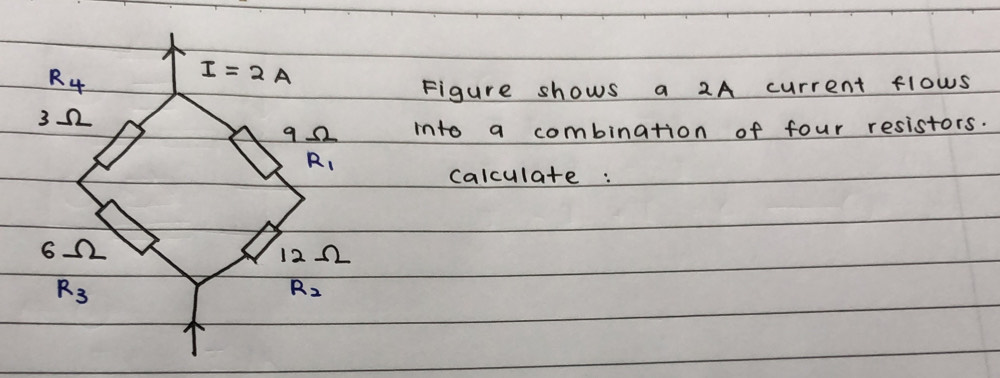 I = 2 A
R4
3 Ω
9 Ω
R1
6 Ω
R3
12 Ω
R2
Figure shows a 2A current flows
into a combination of four resistors.
calculate :